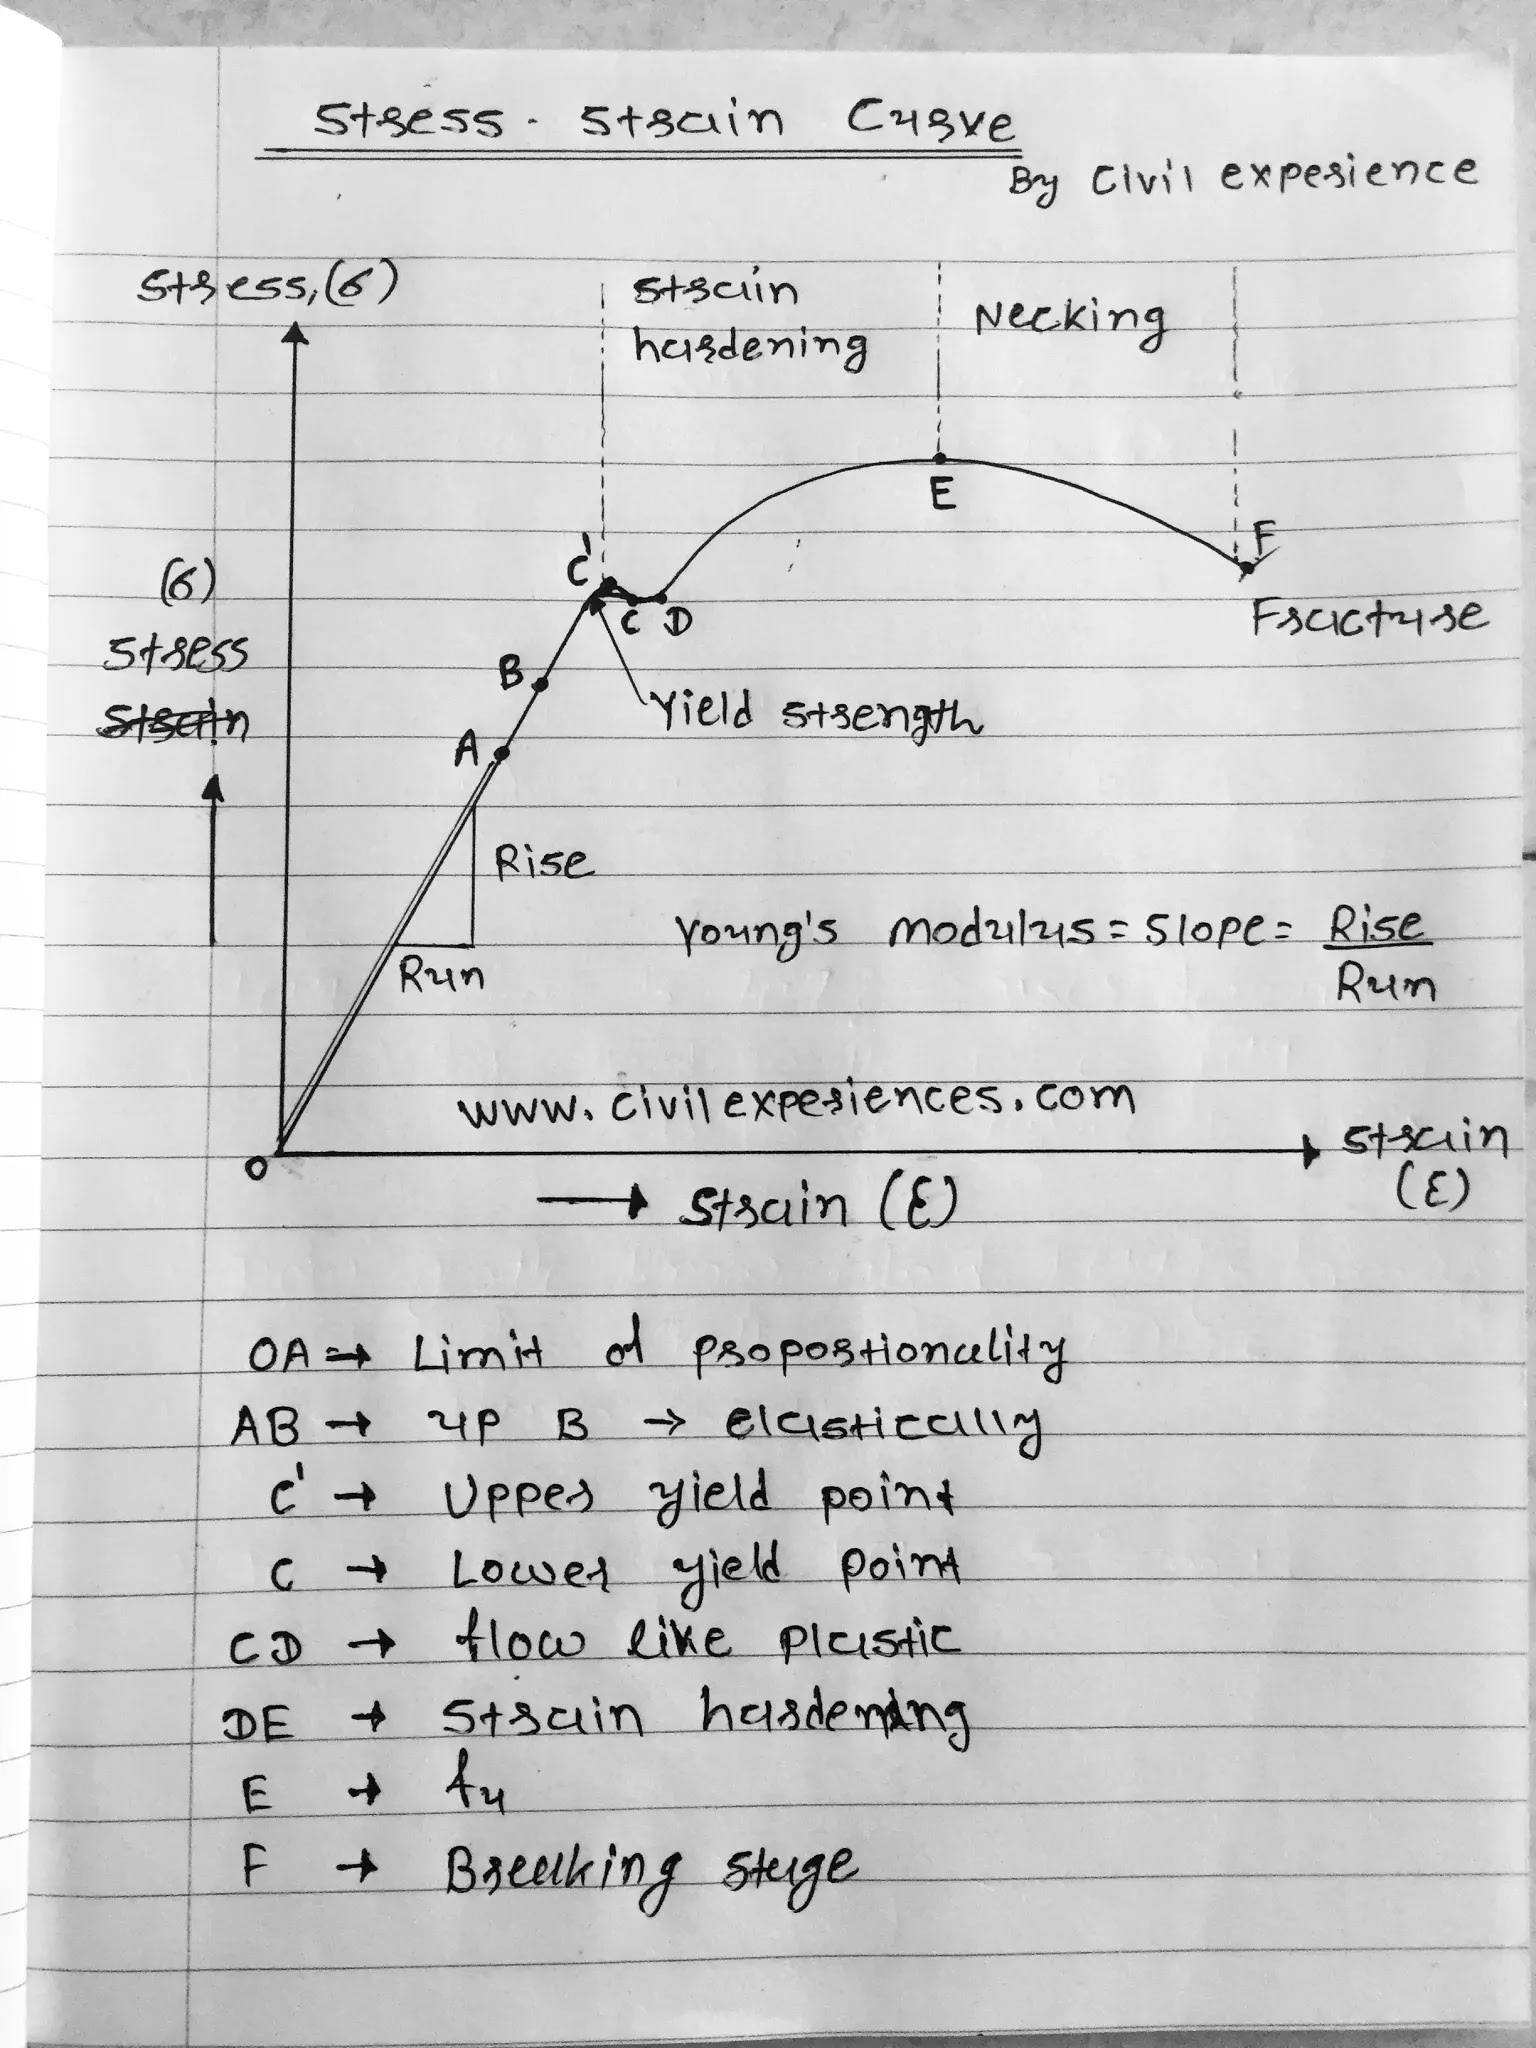 Stress - Strain Curve
By Civil experience
Stress, (σ)
Strain
hardening
Necking
E
F
Fracture
C'
C D
Yield strength
(σ)
Stress
Strain
B
A
Rise
Run
Young's modulus = Slope = Rise
Run
www.civilexperiences.com
O
Strain
(ε)
→ Strain (ε)
OA → Limit of proportionality
AB → up B → elastically
C' → Upper yield point
C → Lower yield point
CD → flow like plastic
DE → Strain hardening
E → fu
F → Breaking stage